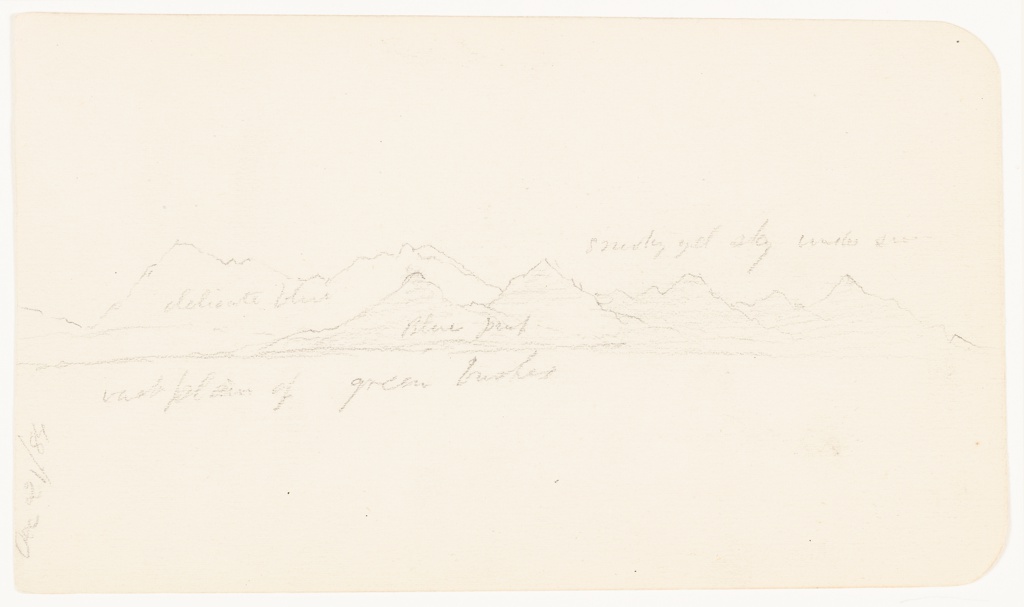 smoky yel sky under sun
delicate blue
Blue purp
vast plain of green bushes